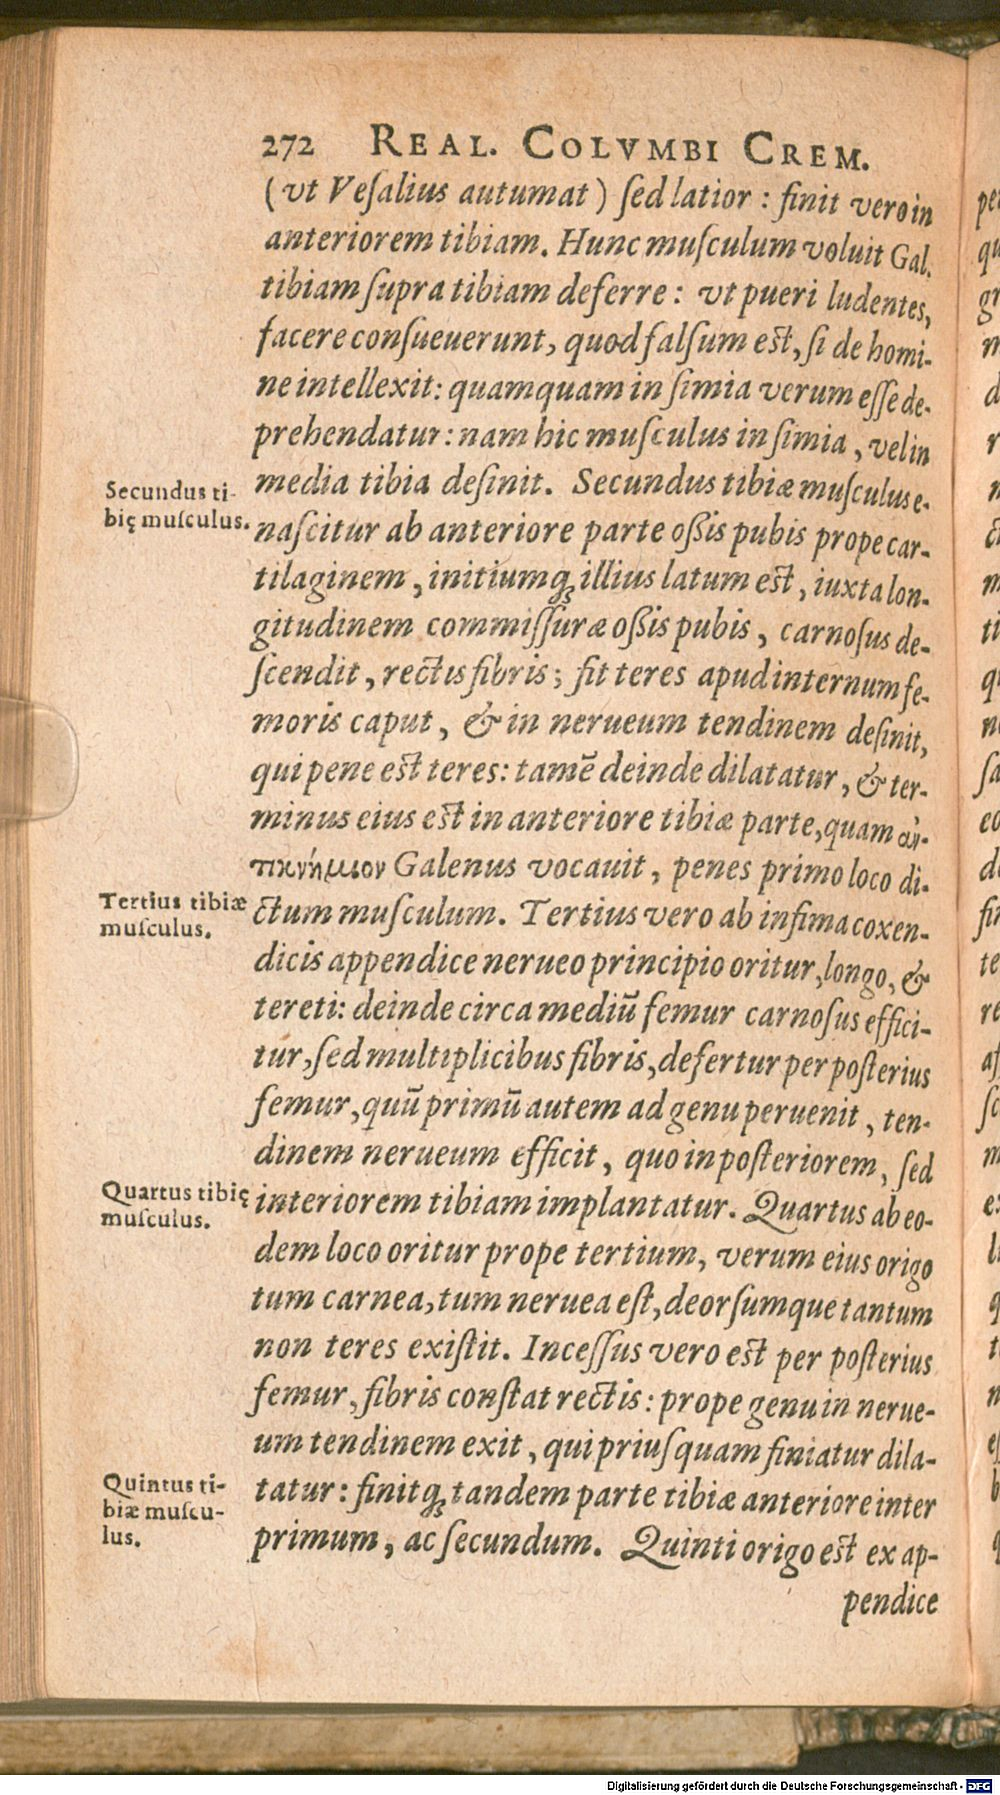 272 REAL. COLVMBI CREM.
(vt Veſalius autumat) ſed latior: finit vero in
anteriorem tibiam. Hunc muſculum voluit Gal.
tibiam ſupra tibiam deferre: vt pueri ludentes,
facere conſueuerunt, quod falſum est, ſi de homi-
ne intellexit: quamquam in ſimia verum eſſe de-
prehendatur: nam hic muſculus in ſimia, vel in
media tibia deſinit. Secundus tibiæ muſculus e-
Secundus ti-
bię muſculus.
naſcitur ab anteriore parte oßis pubis prope car-
tilaginem, initiumq́ illius latum est, iuxta lon-
gitudinem commiſſuræ oßis pubis, carnoſus de-
ſcendit, rectis fibris; fit teres apud internum fe-
moris caput, & in nerueum tendinem deſinit,
qui pene est teres: tamẽ deinde dilatatur, & ter-
minus eius est in anteriore tibiæ parte, quam ἀν-
τικνήμιον Galenus vocauit, penes primo loco di-
Tertius tibiæ
muſculus.
ctum muſculum. Tertius vero ab infima coxen-
dicis appendice nerueo principio oritur, longo, &
tereti: deinde circa mediũ femur carnoſus effici-
tur, ſed multiplicibus fibris, defertur per poſterius
femur, quũ primũ autem ad genu peruenit, ten-
dinem nerueum efficit, quo in poſteriorem, ſed
Quartus tibię
muſculus.
interiorem tibiam implantatur. Quartus ab eo-
dem loco oritur prope tertium, verum eius origo
tum carnea, tum neruea eſt, deorſumque tantum
non teres exiſtit. Inceſſus vero est per poſterius
femur, fibris conſtat rectis: prope genu in nerue-
um tendinem exit, qui priuſquam finiatur dila-
Quintus ti-
biæ muſcu-
lus.
tatur: finitq́ tandem parte tibiæ anteriore inter
primum, ac ſecundum. Quinti origo est ex ap-
pendice
Digitalisierung gefördert durch die Deutsche Forschungsgemeinschaft - DFG